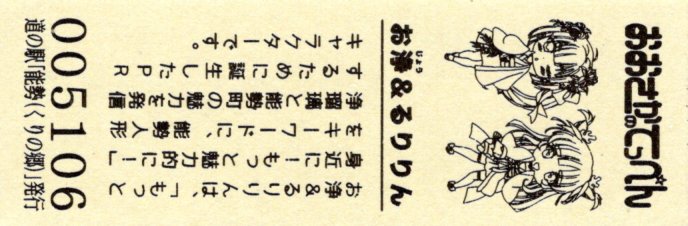 おおさかのてっぺん
お浄&るりりん
じょう
お浄&るりりんは、「もっと
身近に!もっと魅力的に!」
をキーワードに、能勢人形
浄瑠璃と能勢町の魅力を発信
するために誕生したPR
キャラクターです。
005106
道の駅「能勢(くりの郷)」発行